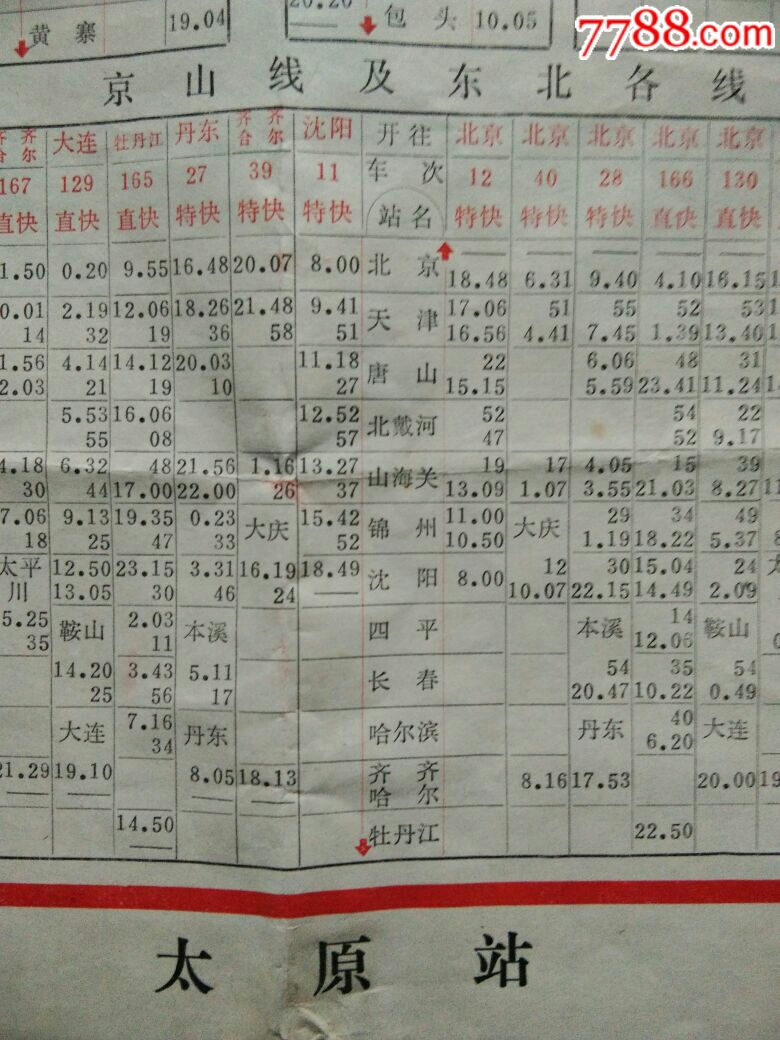 黄寨 19.04 20.20 包头 10.05
7788.com
京山线及东北各线
齐齐合尔 大连 牡丹江 丹东 齐齐合尔 沈阳 开往 北京 北京 北京 北京 北京
167 129 165 27 39 11 车次 12 40 28 166 130
直快 直快 直快 特快 特快 特快 站名 特快 特快 特快 直快 直快
1.50 0.20 9.55 16.48 20.07 8.00 北京 18.48 6.31 9.40 4.10 16.15
0.01 2.19 12.06 18.26 21.48 9.41 天津 17.06 51 55 52 53
14 32 19 36 58 51 16.56 4.41 7.45 1.39 13.40
1.56 4.14 14.12 20.03 11.18 唐山 22 6.06 48 31
2.03 21 19 10 27 15.15 5.59 23.41 11.24
5.53 16.06 12.52 北戴河 52 54 22
55 08 57 47 52 9.17
4.18 6.32 48 21.56 1.16 13.27 山海关 19 17 4.05 15 39
30 44 17.00 22.00 26 37 13.09 1.07 3.55 21.03 8.27
7.06 9.13 19.35 0.23 大庆 15.42 锦州 11.00 大庆 29 34 49
18 25 47 33 52 10.50 1.19 18.22 5.37
太平川 12.50 23.15 3.31 16.19 18.49 沈阳 8.00 12 30 15.04 24
13.05 30 46 24 10.07 22.15 14.49 2.09
5.25 鞍山 2.03 本溪 四平 本溪 14 鞍山
35 11 12.06
14.20 3.43 5.11 长春 54 35 54
25 56 17 20.47 10.22 0.49
大连 7.16 丹东 哈尔滨 丹东 40 大连
34 6.20
21.29 19.10 8.05 18.13 齐齐哈尔 8.16 17.53 20.00
14.50 牡丹江 22.50
太原站